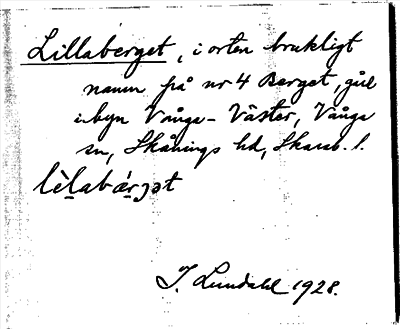 Lillaberget, i orten brukligt
namn på nr 4 Berget, gård
i byn Vånga-Väster, Vånga
sn, Skånings hd, Skarab. l.
lèḷabǽr̥jət
I. Lundahl 1928.